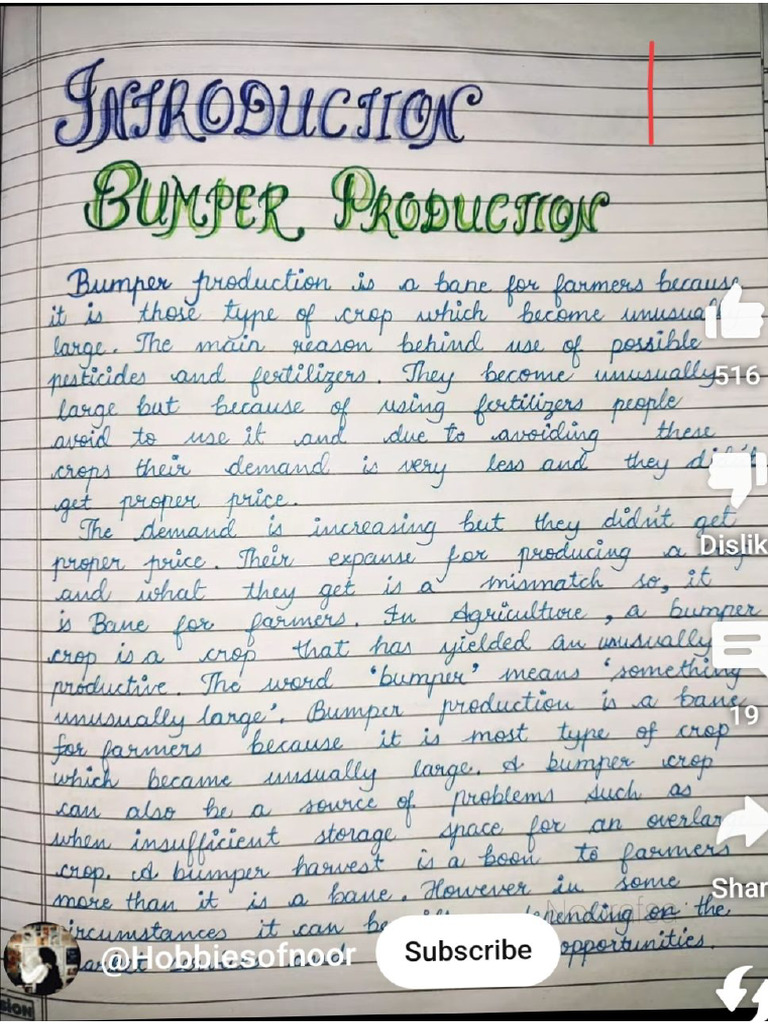 INTRODUCTION
BUMPER PRODUCTION
Bumper production is a bane for farmers because
it is those type of crop which become unusually
large. The main reason behind use of possible
pesticides and fertilizers. They become unusually
516
large but because of using fertilizers people
avoid to use it and due to avoiding these
crops their demand is very less and they didn't
get proper price.
The demand is increasing but they didn't get
Dislik
proper price. Their expanse for producing a
and what they get is a mismatch so, it
is Bane for farmers. In Agriculture, a bumper
crop is a crop that has yielded an unusually
productive. The word 'bumper' means 'something
19
unusually large'. Bumper production is a bane
for farmers because it is most type of crop
which became unusually large. A bumper crop
can also be a source of problems such as
when insufficient storage space for an overlar
crop. A bumper harvest is a boon to farmers
Shar
more than it is a bane. However in some
circumstances it can be depending on the
@Hobbiesofnoor
Subscribe
opportunities.